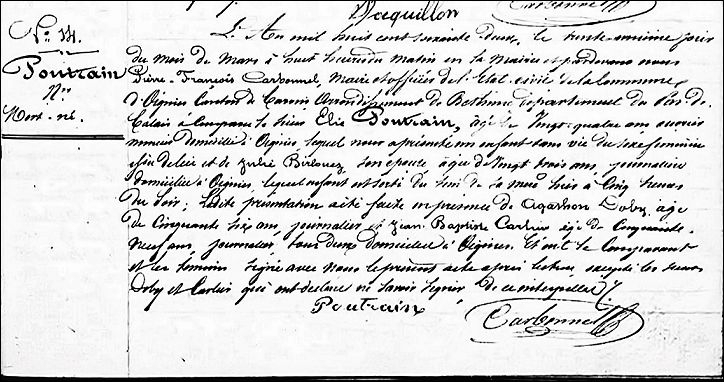 Vaquillon
Carbonnel
No. 14.
Poutrain
Nn
Mort-né.
L'An mil huit cent soixante deux, le trente-unième jour
du mois de Mars à huit heures du matin en la Mairie et pardevant nous
Pierre-François Carbonnel, Maire et officier de l'Etat-civil de la Commune
d'Oignies Canton de Carvin Arrondissement de Béthune département du Pas de
Calais a comparu le sieur Elie Poutrain, âgé de Vingt-quatre ans ouvrier
mineur domicilié à Oignies lequel nous a présenté un enfant sans vie du sexe féminin
de lui et de Julie Birlouez son épouse âgée de Vingt trois ans, journalière
domiciliée à Oignies, lequel enfant est sorti du sein de sa mère hier à Cinq heures
du soir; Ladite présentation a été faite en présence de Agathon Doby, âgé
de Cinquante six ans, journalier et Jean Baptiste Carlier âgé de Cinquante-
neuf ans, journalier, tous deux domiciliés à Oignies. Et ont le Comparant
et les témoins signé avec Nous le présent acte après lecture, excepté les sieurs
Doby et Carlier qui ont déclaré ne savoir signer de ce interpellés
Poutrain
Carbonnel